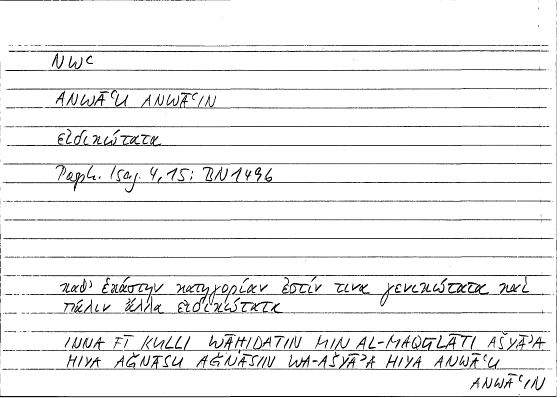 NWʿ
ANWĀʿU ANWĀʿIN
εἰδικώτατα
Porph. Isag. 4,15: BN1496
καθ' ἑκάστην κατηγορίαν ἐστίν τινα γενικώτατα καὶ
πάλιν ἄλλα εἰδικώτατα
INNA FĪ KULLI WĀḤIDATIN MIN AL-MAQŪLĀTI AŠYĀʾA
HIYA AǦNĀSU AǦNĀSIN WA-AŠYĀʾA HIYA ANWĀʿU
ANWĀʿIN